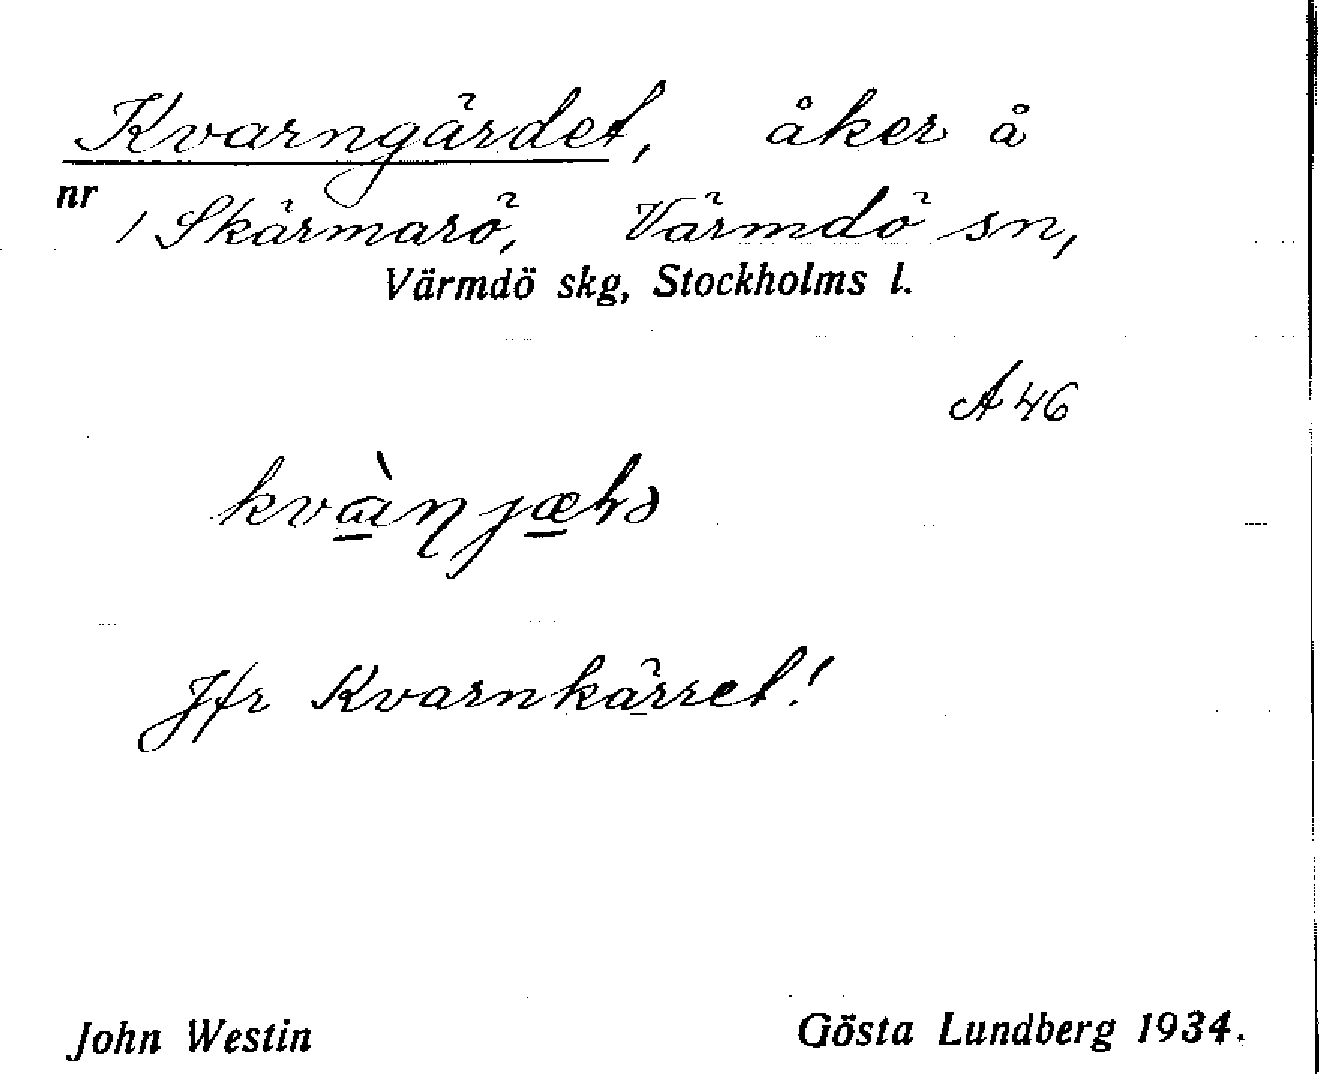 Kvarngärdet, åker å
nr 1 Skärmarö, Värmdö sn,
Värmdö skg, Stockholms l.
A 46
Jfr Kvarnkärret!
John Westin
Gösta Lundberg 1934.